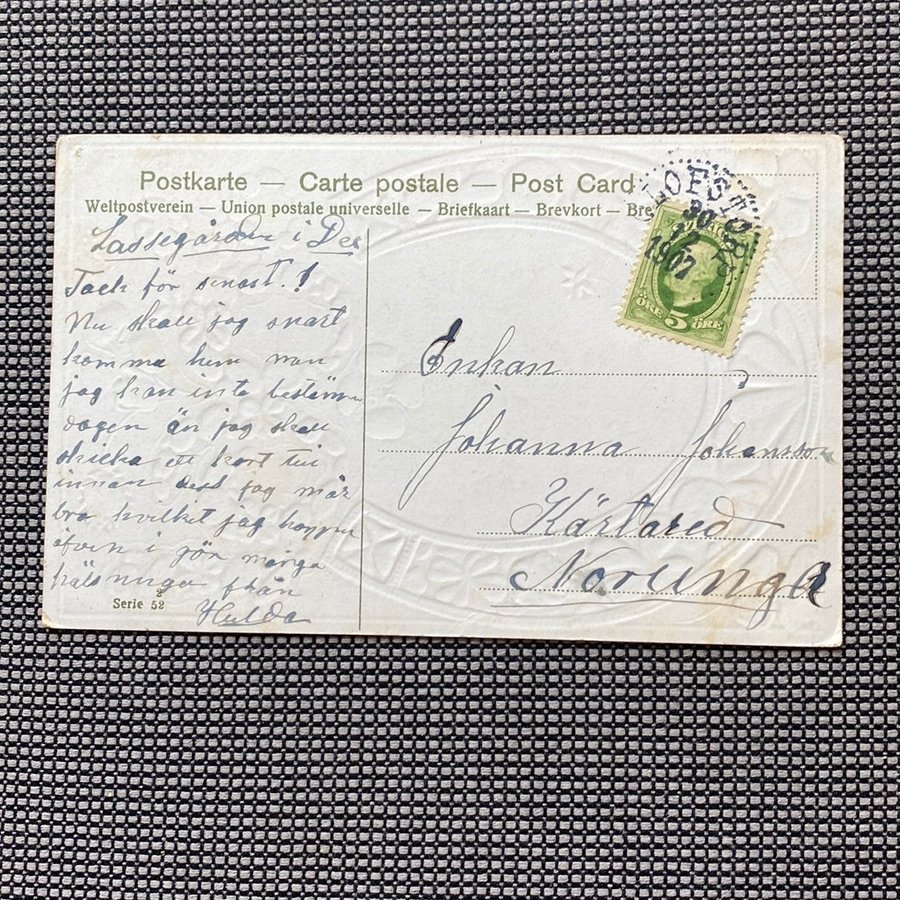 Postkarte — Carte postale — Post Card
Weltpostverein — Union postale universelle — Briefkaart — Brevkort — Bre
Lassegården i Dec
Tack för senast.!
Nu skall jag snart
komma hem men
jag kan inte bestämma
dagen än jag skall
skicka ett kort till
innan dess jag mår
bra hvilket jag hoppas
äfven i gör många
hälsninga från
Hulda
Serie 52
2
LOFSTORP
30
12
1907
ÖRE 5 ÖRE
Enkan
Johanna Johansson
Kärtared
Norunga